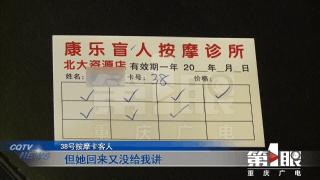 康乐盲人按摩诊所
北大资源店 有效期一年 20__年_月_日
姓名: 卡号: 38 价格:
重庆广电
38号按摩卡客人
但她回来又没给我讲
CQTV
NEWS
第1眼
重庆广电